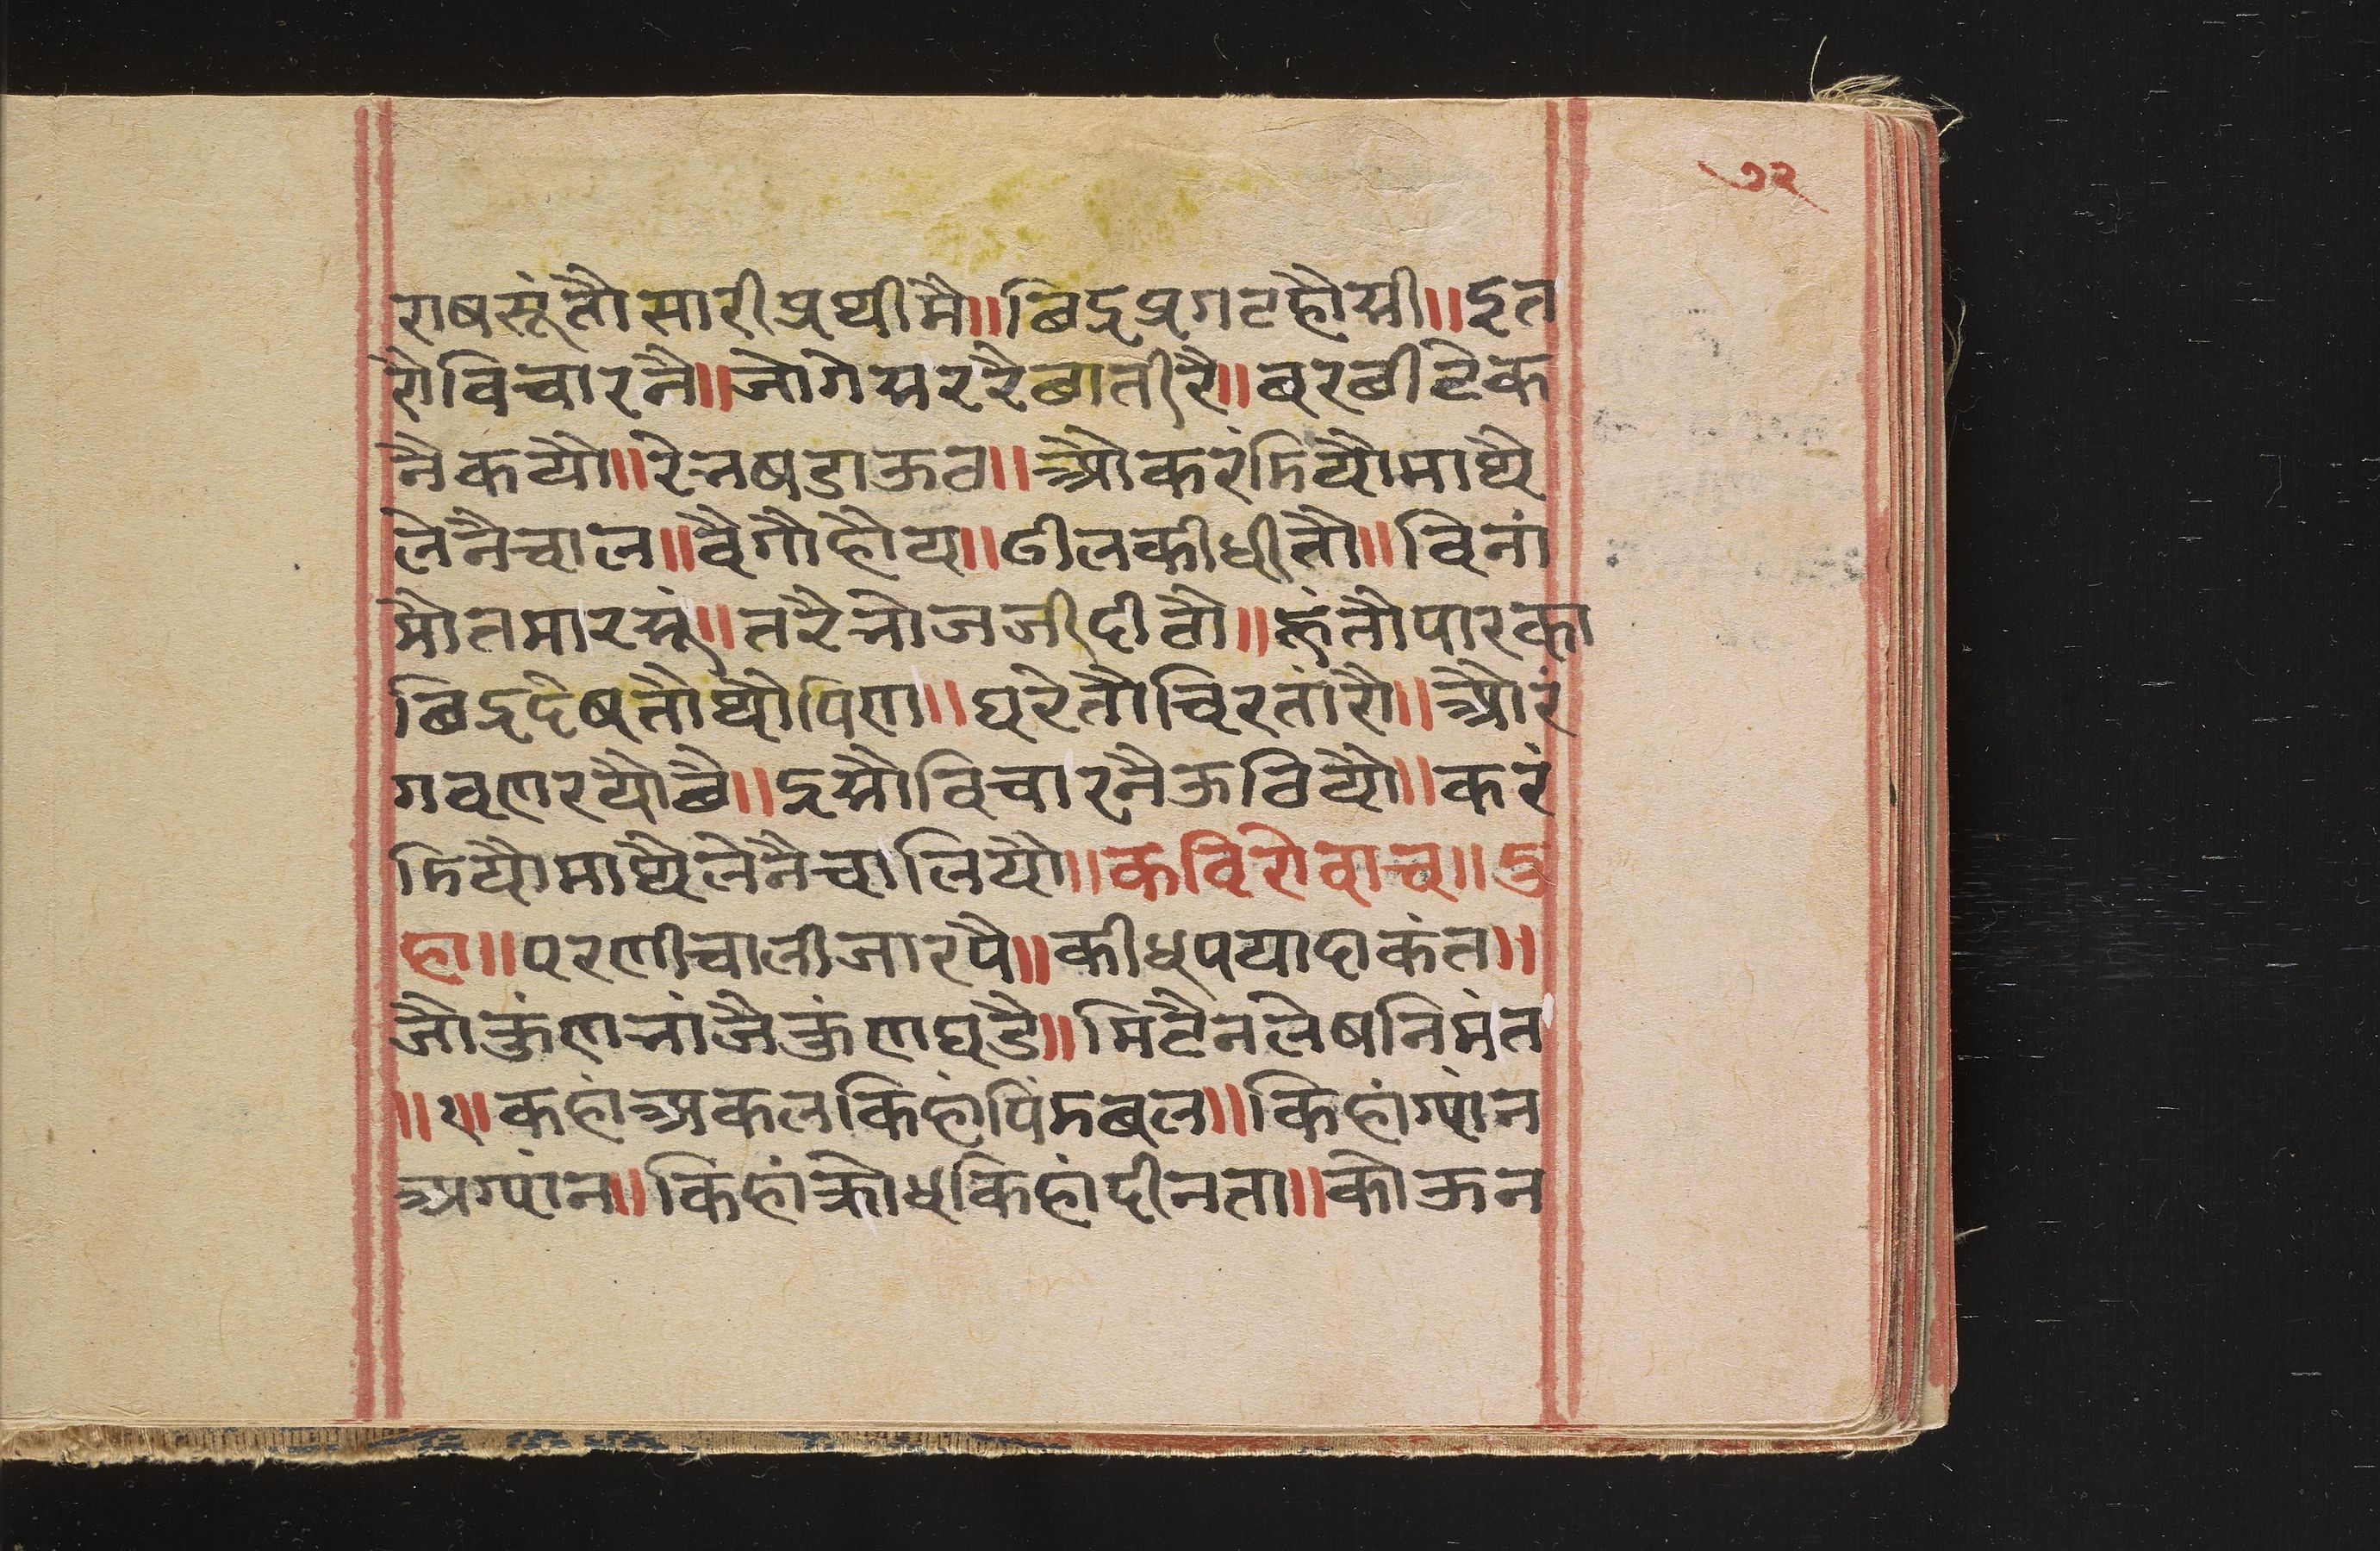 ७२
राषसूंतौसारीप्रथीमै॥बिद्रप्रगटहौसी॥इत
रौविचारनै॥जोगेसररैबातीरै॥बरबीटेक
नैकयौ॥रेनषडाऊव॥औकरंमियौमाथै
लेनैचाल॥वैगौहौय॥ढीलकीधीतौ॥विनां
मौतमारसूं॥तरैनोजजीदीठौ॥हूंतौपारका
बिद्रदेषतौथौपिण॥घरेतौचिरतांरौ॥औरं
गवणरयौबै॥इसौविचारनैऊठियौ॥करं
मियौमाथैलेनैचालियौ॥कविरोवाच॥दु
हा॥परणीचालीजारपै॥कीधपयादाकंत॥
जौकुंणनांजैकुंणघडै॥मिटैनलेषनिमंत
॥१॥कहांअकलकिहांपिंमबल॥किहांग्यांन
अग्यांन॥किहांक्रोधकिहांदीनता॥कोऊन